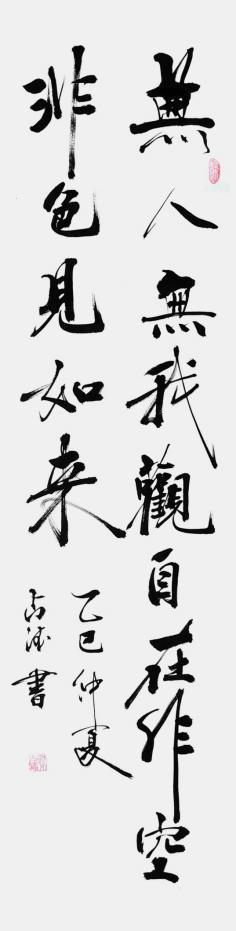 無人無我觀自在非空
非色見如来
乙巳仲夏
占書